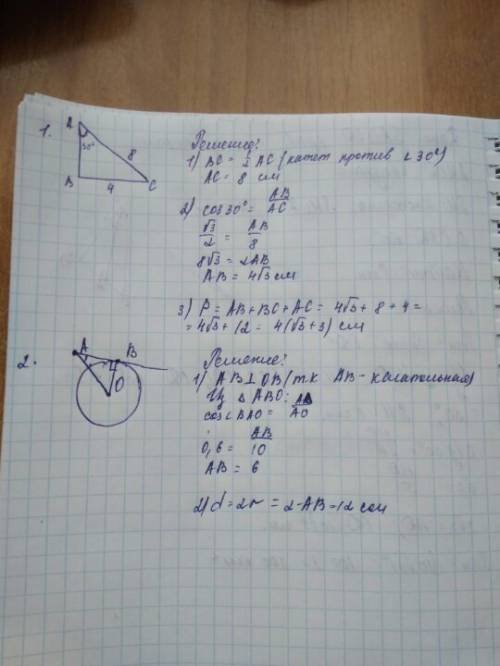 1.
A
30°
8
B
4
C
Решение:
1) BC = ½ AC (катет против ∠30°)
AC = 8 см
2) cos 30° = AB/AC
√3/2 = AB/8
8√3 = 2AB
AB = 4√3 см
3) P = AB + BC + AC = 4√3 + 8 + 4 =
= 4√3 + 12 = 4(√3 + 3) см
2.
A
B
O
Решение:
1) AB ⊥ OB (тк AB - касательная)
Из △ ABO:
cos∠BAO = AB/AO
0,6 = AB/10
AB = 6
2) d = 2r = 2·AB = 12 см